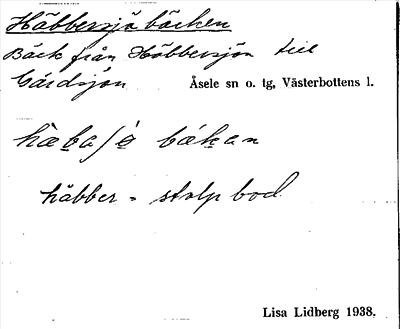 Häbbersjöbäcken
Bäck från Häbbersjön till
Gårdsjön
Åsele sn o. tg, Västerbottens l.
bækan
häbber = stolpbod
Lisa Lidberg 1938.